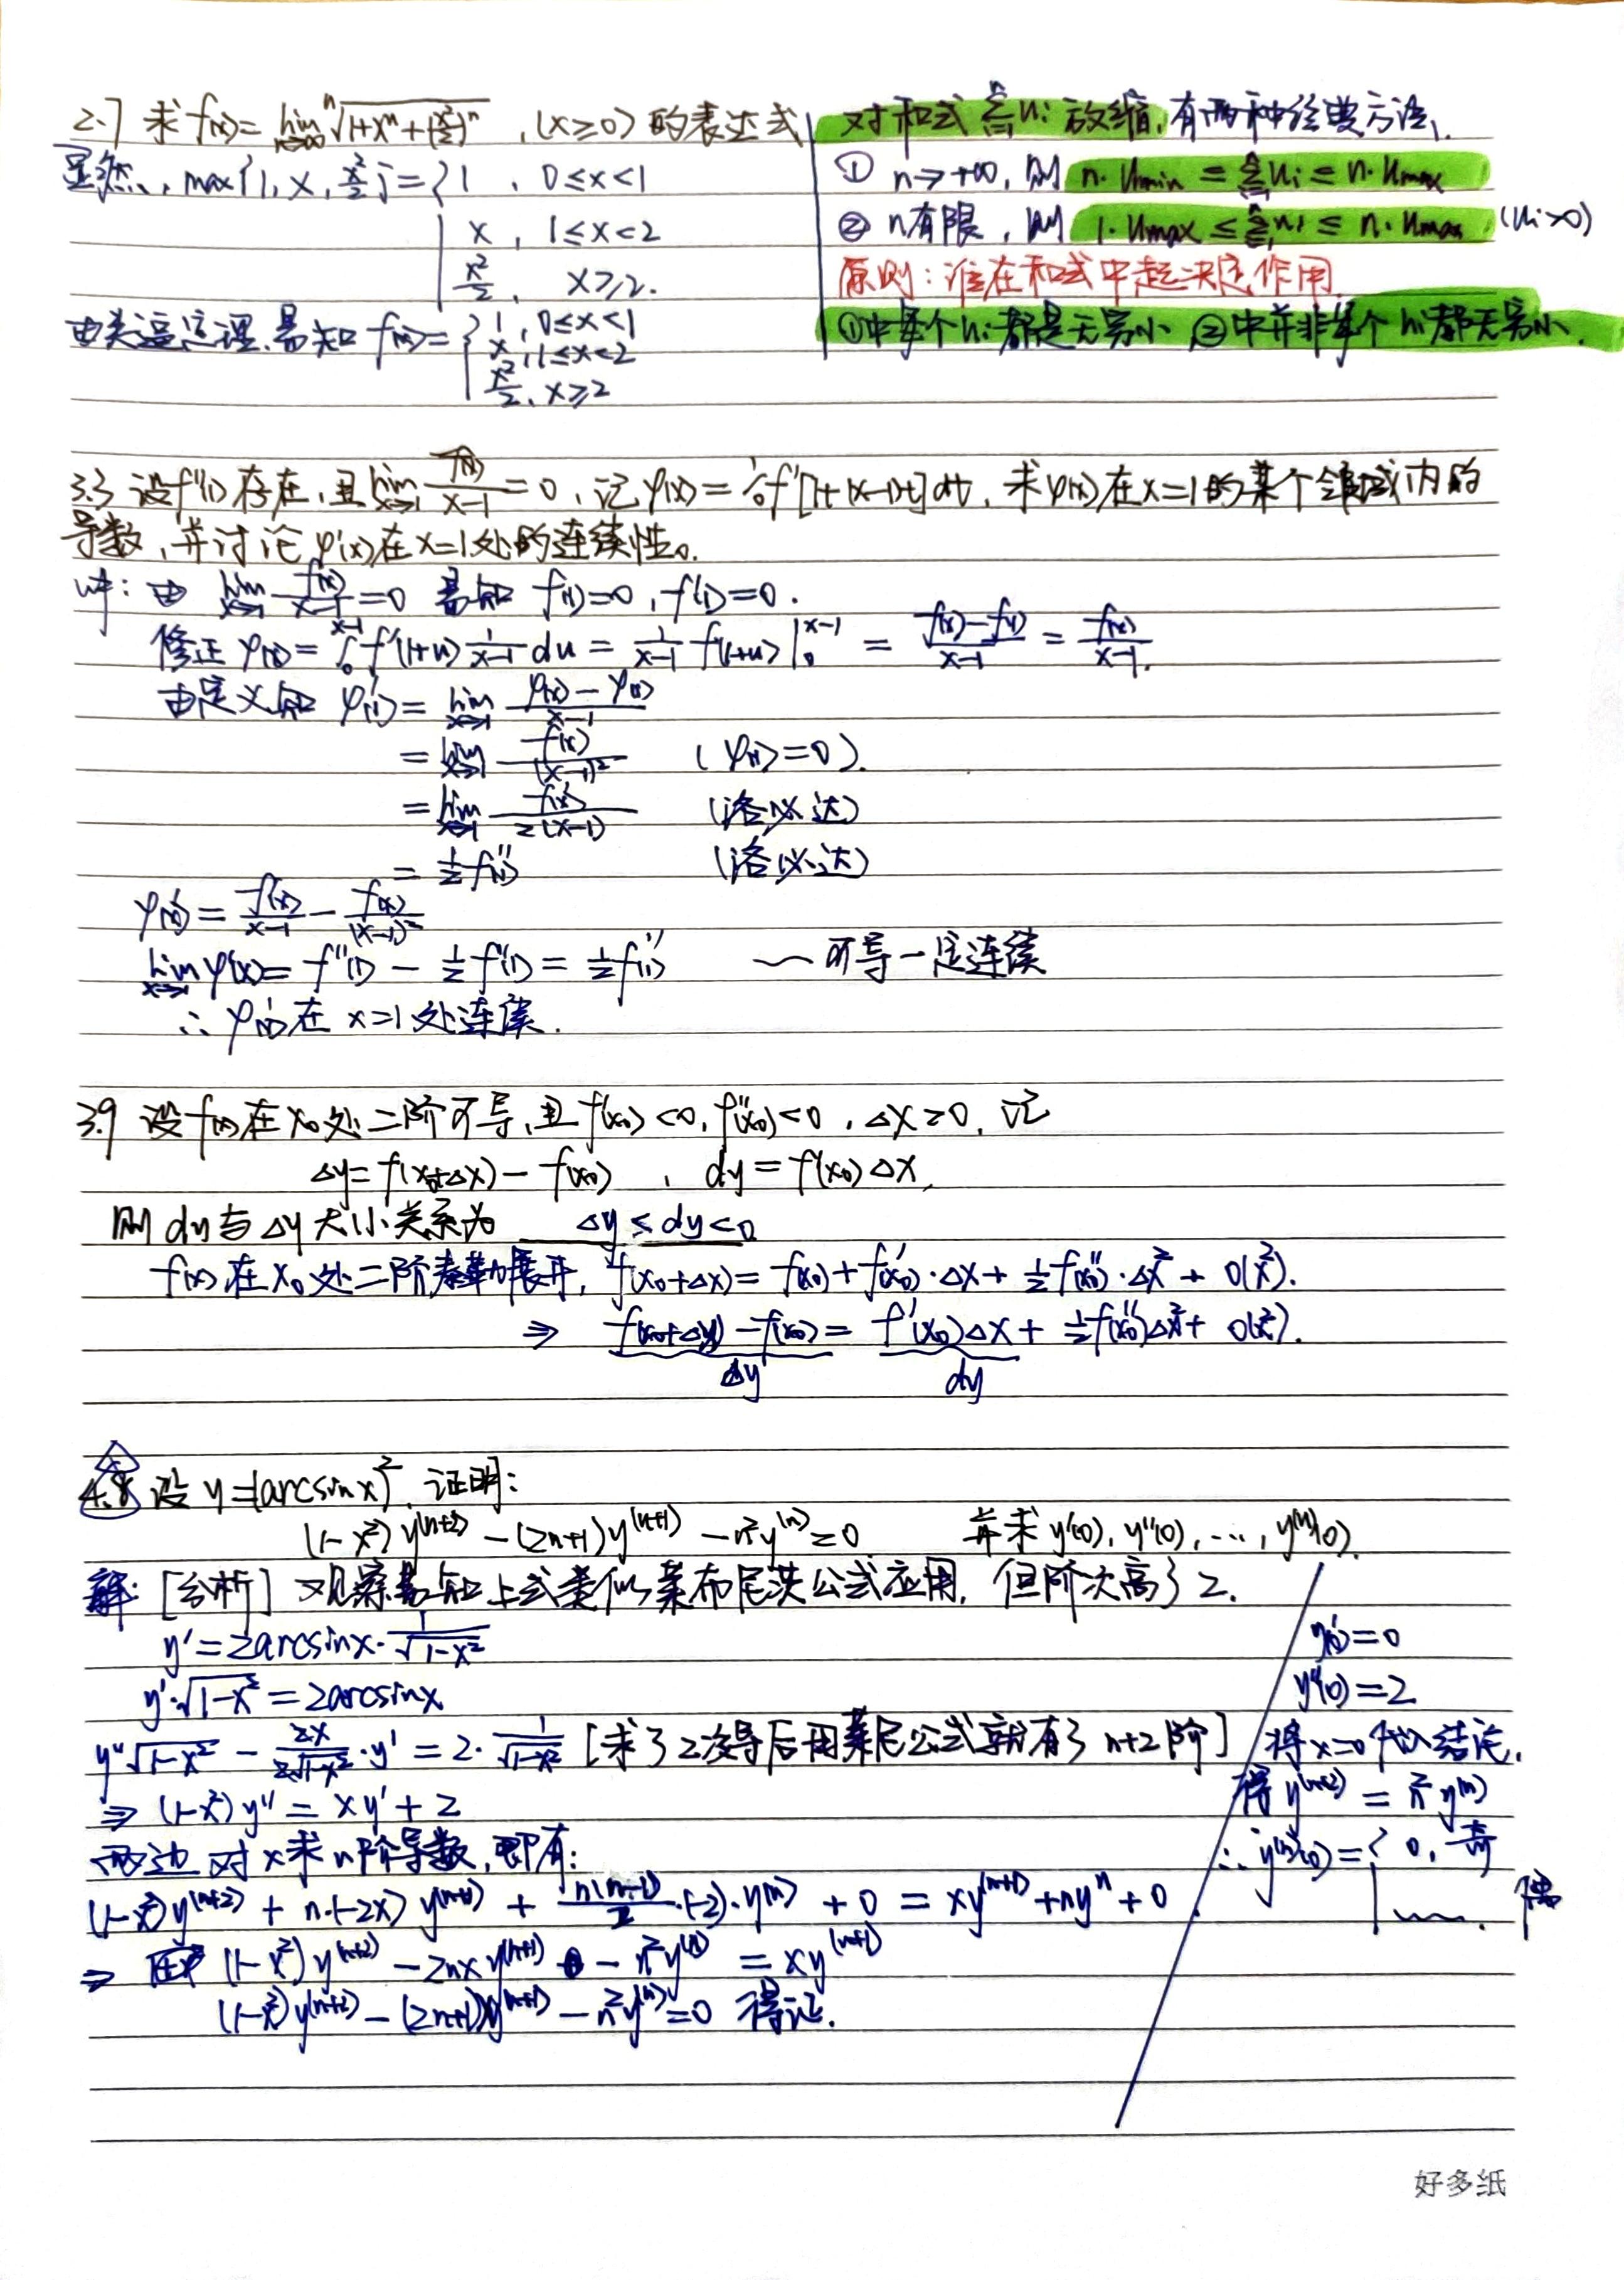 2.7 求 f(x)= lim_{n→∞} ⁿ√(1+xⁿ+(x²/2)ⁿ) ,(x≥0) 的表达式
显然, max{1, x, x²/2} = { 1 , 0≤x<1
x , 1≤x<2
x²/2 , x≥2.
由夹逼定理,易知 f(x)= { 1, 0≤x<1
x, 1≤x<2
x²/2, x≥2
对和式 Σui 放缩,有两种经典方法,
① n→+∞, 则 n·umin ≤ Σui ≤ n·umax
② n有限, 则 1·umax ≤ Σui ≤ n·umax (ui>0)
原则:谁在和式中起决定作用.
①中每个ui都是无穷小 ②中并非每个ui都无穷小.
3.3 设f''(1)存在,且 lim_{x→1} f(x)/(x-1) = 0, 记 φ(x)=∫₀¹f'[1+(x-1)t]dt, 求φ(x)在x=1的某个邻域内的
导数,并讨论φ'(x)在x=1处的连续性。
由 lim_{x→1} f(x)/(x-1) = 0 易知 f(1)=0, f'(1)=0.
修正 φ(x)=∫₀^{x-1} f'(1+u) 1/(x-1) du = 1/(x-1) f(1+u)|₀^{x-1} = (f(x)-f(1))/(x-1) = f(x)/(x-1).
由定义知 φ'(1) = lim_{x→1} (φ(x)-φ(1))/(x-1)
= lim_{x→1} f(x)/(x-1)² (φ(1)=0).
= lim_{x→1} f'(x)/2(x-1) (洛必达)
= ½f''(1) (洛必达)
φ'(x) = f'(x)/(x-1) - f(x)/(x-1)²
lim_{x→1} φ'(x) = f''(1) - ½f''(1) = ½f''(1) 〜 可导一定连续
∴ φ'(x)在 x=1处连续.
3.9 设f(x)在x₀处二阶可导,且f'(x₀)<0, f''(x₀)<0, Δx>0, 记
Δy=f(x₀+Δx)-f(x₀) , dy=f'(x₀)Δx,
则 dy与Δy大小关系为 Δy≤dy<0
f(x)在x₀处二阶泰勒展开, f(x₀+Δx)=f(x₀)+f'(x₀)·Δx+½f''(x₀)·Δx²+o(x²).
⇒ f(x₀+Δy)-f(x₀)=f'(x₀)Δx+½f''(x₀)Δx²+o(x²).
Δy dy
4.8 设 y=(arcsinx)², 证明:
(1-x²)y^(n+2)-(2n+1)y^(n+1)-n²y^(n)=0 并求y'(0), y''(0), …, y^(n)(0).
解: [分析] 观察易知上式类似莱布尼茨公式应用, 但阶次高了2.
y'=2arcsinx·1/√(1-x²)
y'·√(1-x²)=2arcsinx
y''√(1-x²) - 2x/(2√(1-x²))·y' = 2·1/√(1-x²) [求了2次导后用莱尼公式就有了n+2阶]
⇒ (1-x²)y''=xy'+2
两边对x求n阶导数,即有:
(1-x²)y^(n+2)+n·(-2x)y^(n+1)+n(n-1)/2·(-2)·y^(n)+0=xy^(n+1)+nyⁿ+0
⇒ (1-x²)y^(n+2)-2nxy^(n+1)-n²y^(n)=xy^(n+1)
(1-x²)y^(n+2)-(2n+1)y^(n+1)-n²y^(n)=0 得证.
y'(0)=0
y''(0)=2
将x=0代入结论,
得y^(n+2)=n²y^(n)
∴y^(n)(0)={ 0, 奇
﹏. 偶
好多纸